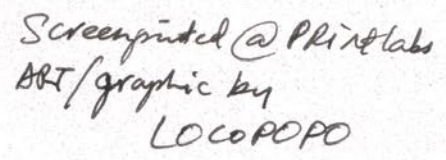 Screenprinted @ PRintlabs
ART/graphic by
LOCOPOPO